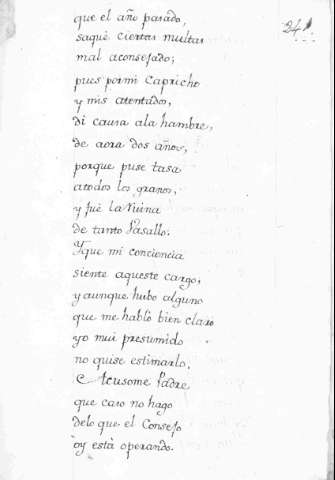 24
que el año pasado,
saquè ciertas multas
mal aconsejado;
pues por mi Capricho
y mis atentados,
di causa ala hambre,
de aora dos años,
porque puse tasa
atodos los granos,
y fuè la Ruina
de tanto Vasallo.
Yque mi conciencia
siente aqueste cargo,
y aunque hubo alguno
que me hablò bien claro
yo mui presumido
no quise estimarlo.
Acusome Padre
que caso no hago
delo que el Consejo
oy està operando.